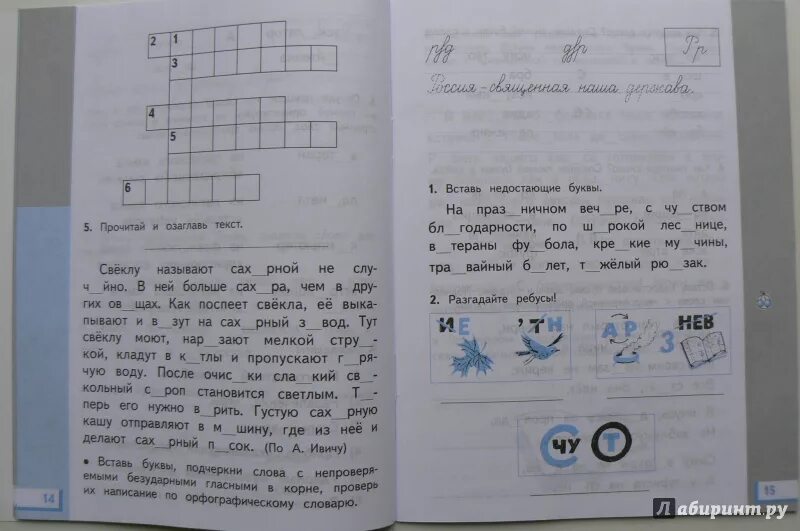 2 1
3
4
5
6
5. Прочитай и озаглавь текст.
Свёклу называют сах__рной не слу-
ч__йно. В ней больше сах__ра, чем в дру-
гих ов__щах. Как поспеет свёкла, её выка-
пывают и в__зут на сах__рный з__вод. Тут
свёклу моют, нар__зают мелкой стру__-
кой, кладут в к__тлы и пропускают г__ря-
чую воду. После очис__ки сла__кий св__-
кольный с__роп становится светлым. Т__-
перь его нужно в__рить. Густую сах__рную
кашу отправляют в м__шину, где из неё и
делают сах__рный п__сок. (По А. Ивичу)
• Вставь буквы, подчеркни слова с непроверя-
емыми безударными гласными в корне, проверь
их написание по орфографическому словарю.
14
Рр
Россия – священная наша держава.
1. Вставь недостающие буквы.
На праз__ничном веч__ре, с чу__ством
бл__годарности, по ш__рокой лес__нице,
в__тераны фу__бола, кре__кие му__чины,
тра__вайный б__лет, т__жёлый рю__зак.
2. Разгадайте ребусы!
ИЕ ’ТН АР З НЕВ
С ЧУ О Т
15
Лабиринт.ру